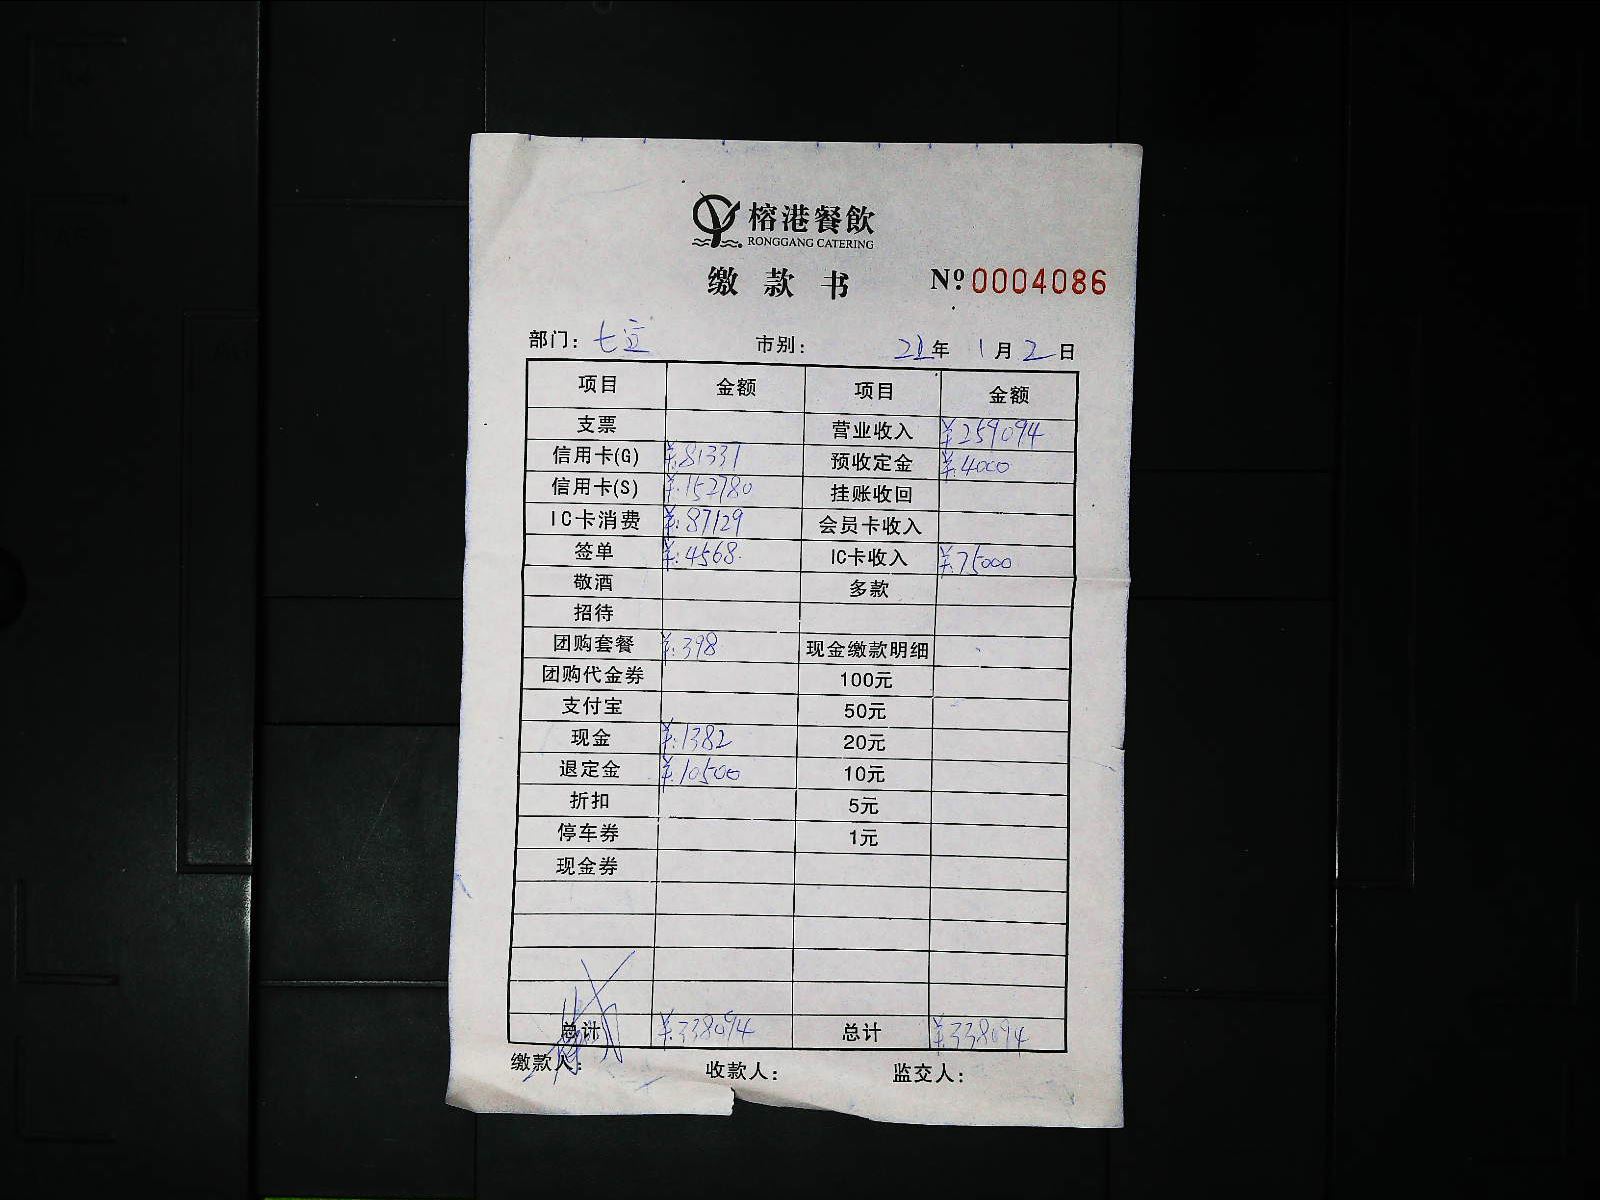 榕港餐飲
RONGGANG CATERING
缴款书 Nº 0004086
部门: 七 市别: 21年 1月 2日
项目 金额 项目 金额
支票 营业收入 ¥259094
信用卡(G) ¥:81337 预收定金 ¥:4000
信用卡(S) ¥:152780 挂账收回
IC卡消费 ¥:87129 会员卡收入
签单 ¥:4568 IC卡收入 ¥75000
敬酒 多款
招待
团购套餐 ¥:398 现金缴款明细
团购代金券 100元
支付宝 50元
现金 ¥:1382 20元
退定金 ¥:10500 10元
折扣 5元
停车券 1元
现金券
总计 ¥:338094 总计 ¥:338094
缴款人: 收款人: 监交人: